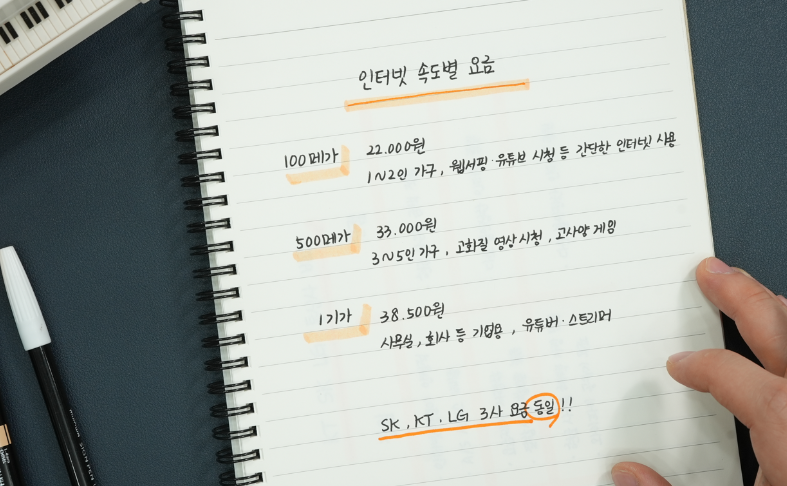 인터넷 속도별 요금
100메가 22.000원
1~2인 가구, 웹서핑·유튜브 시청 등 간단한 인터넷 사용
500메가 33.000원
3~5인 가구, 고화질 영상 시청, 고사양 게임
1기가 38.500원
사무실, 회사 등 기업용, 유튜버·스트리머
SK, KT, LG 3사 요금 동일!!